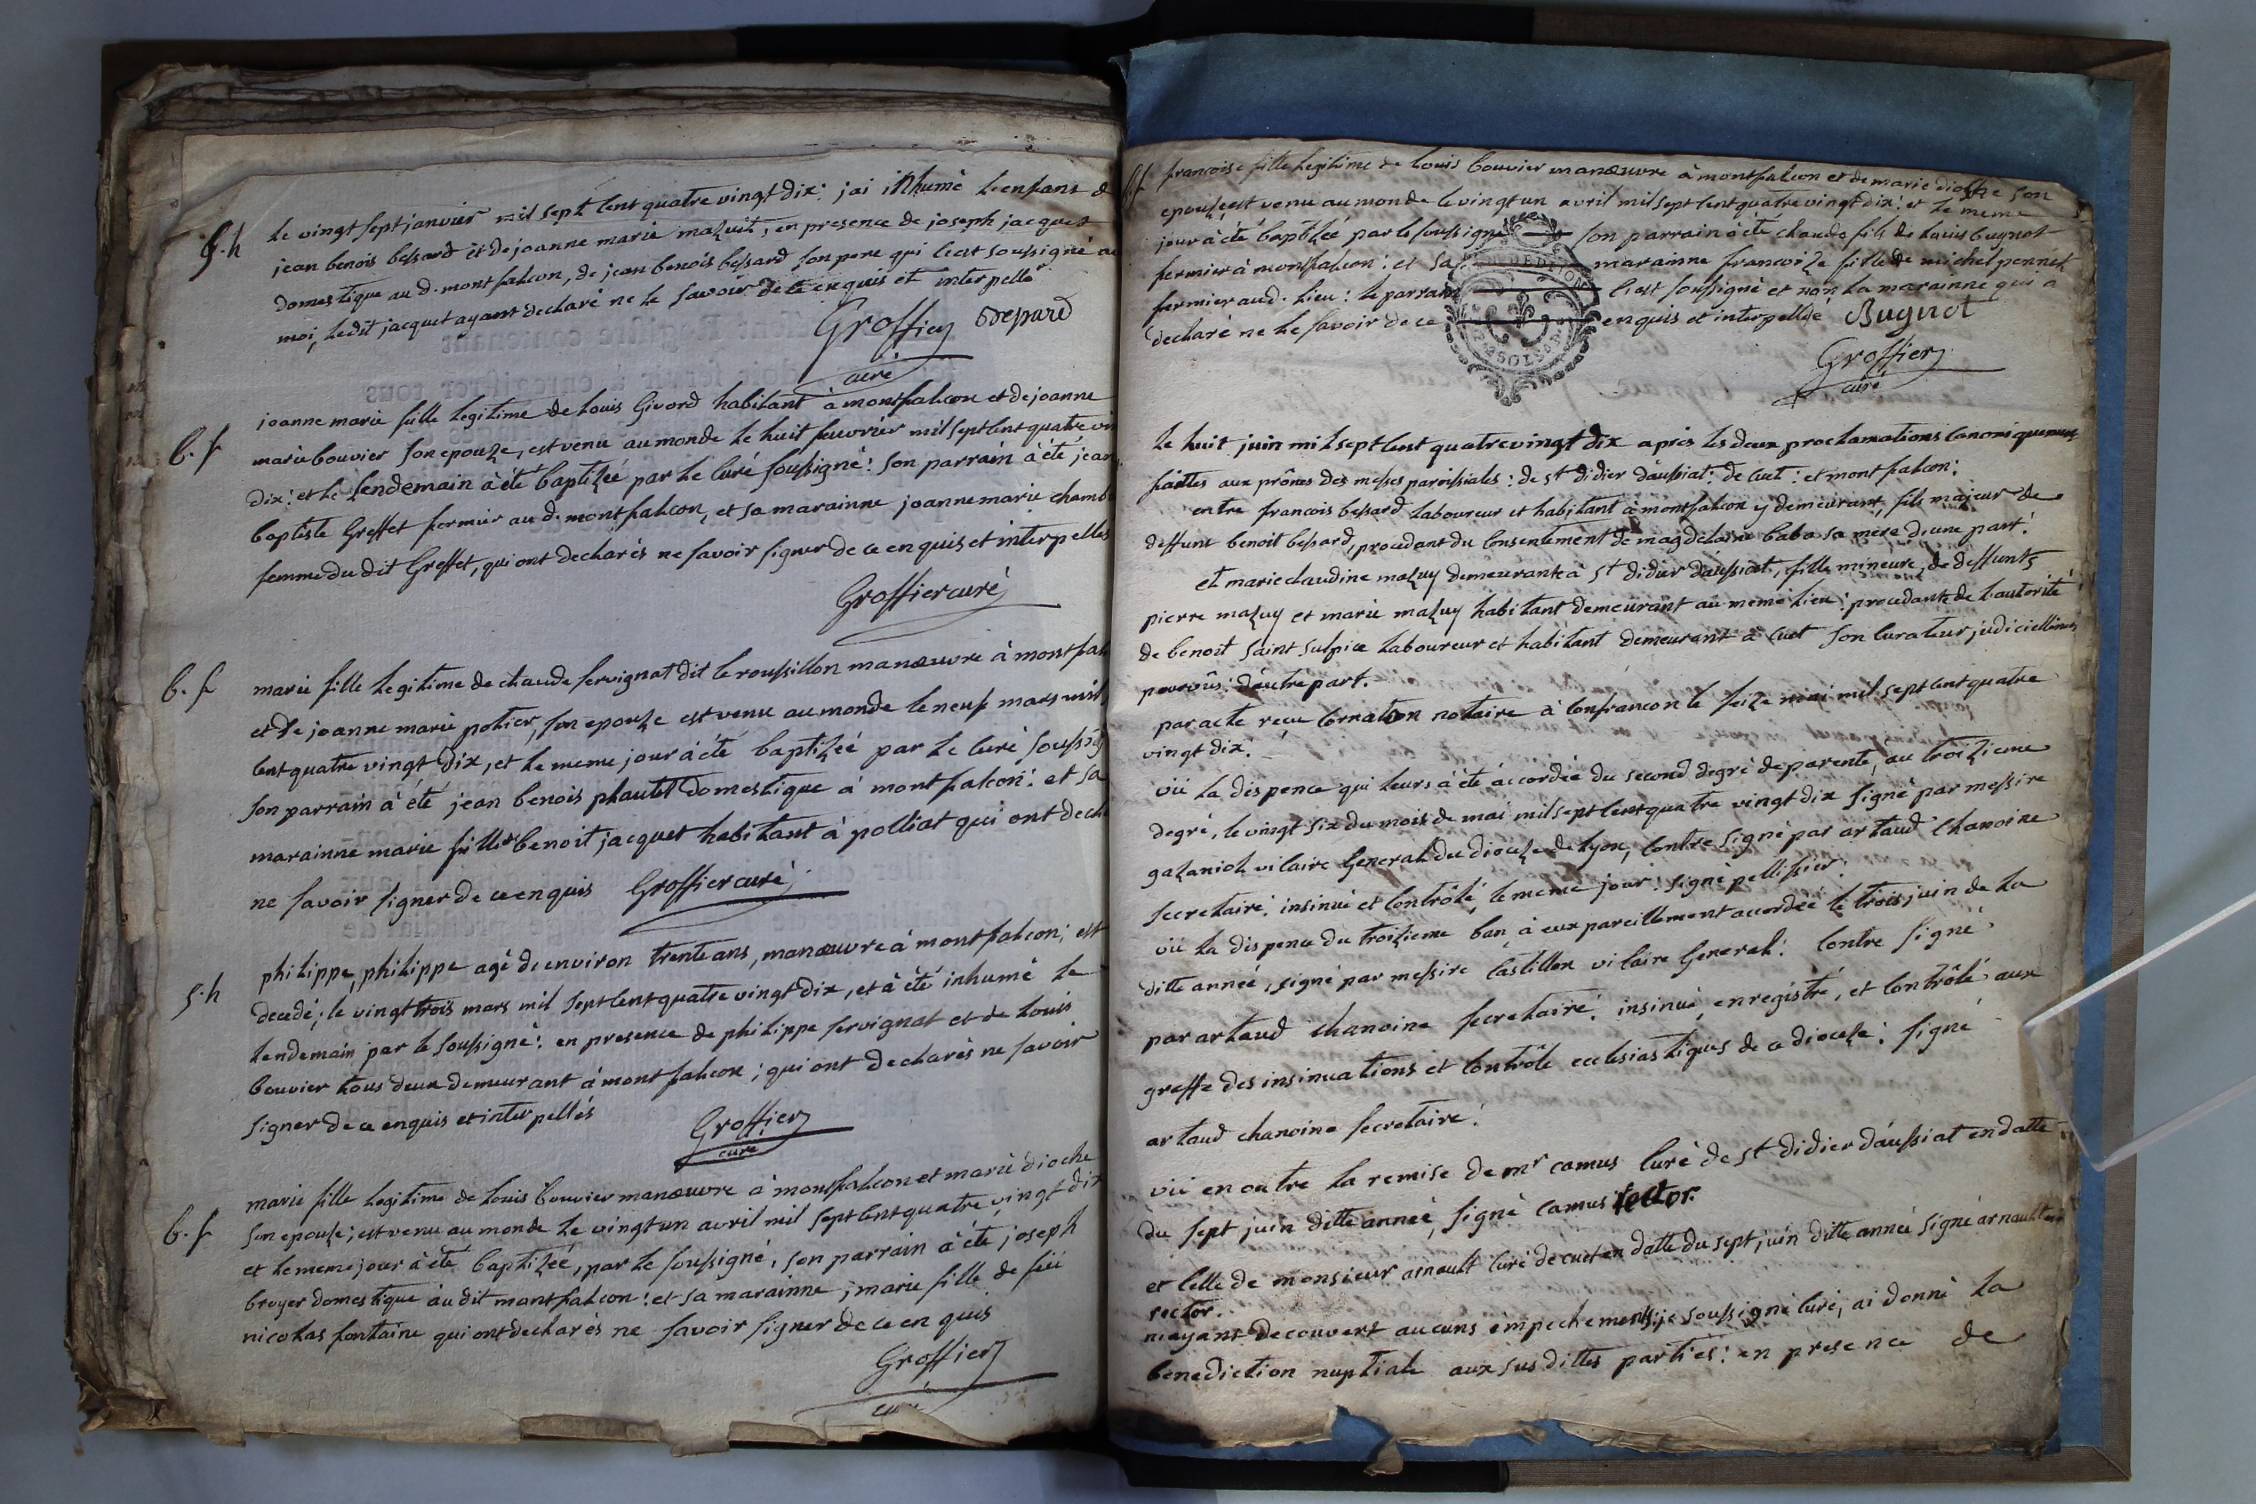 S.h
le vingt sept janvier mil sept cent quatre vingt dix: jai inhumé lenfant d
jean benois bessard et de joanne marie mazuit, en presence de joseph jacquet
domestique au d. montfalcon, de jean benois bessard son pere qui sest soussigné av
moi, ledit jacquet ayant declaré ne le savoir de ce enquis et interpellé
Groffier
curé
b. f
joanne marie fille legitime de louis Givord habitant à montfalcon et de joanne
marie bouvier son epouze, est venu au monde le huit feuvrier mil sept cent quatre vin
dix: et le lendemain à été baptizée par le curé soussigné: son parrain à été jean
baptiste Greffet fermier au d. montfalcon, et sa marainne joanne marie chamb
femme du dit Greffet, qui ont declarés ne savoir signer de ce enquis et interpelles
Groffier curé
b. f
marie fille legitime de claude servignat dit le roussillon manœuvre à montfal
et de joanne marie potier, son epouze est venu au monde le neuf mars mil
cent quatre vingt dix, et le meme jour à été baptizéé par le curé soussig
son parrain à été jean benois domestique à montfalcon: et sa
marainne marie fille benoit jacquet habitant à polliat qui ont decla
ne savoir signer de ce enquis Groffier curé
S.h
philippe, philippe agé de environ trente ans, manœuvre à montfalcon; est
decedé; le vingt trois mars mil sept cent quatre vingt dix, et à été inhumé le
lendemain par le soussigné: en presence de philippe servignat et de louis
bouvier tous deux demeurant à montfalcon; qui ont declarés ne savoir
signer de ce enquis et interpellés
Groffier
curé
b. f
marie fille legitime de louis bouvier manœuvre à montfalcon et marie dioche
son epouse; est venu au monde le vingt un avril mil sept cent quatre vingt dix
et le meme jour à été baptizéé, par le soussigné, son parrain à été joseph
broyer domestique au dit montfalcon: et sa marainne; marie fille de feü
nicolas fontaine qui ont declarés ne savoir signer de ce enquis
Groffier
curé
b.f
francoise fille legitime de louis bouvier manœuvre à montfalcon et de marie dioche son
epouze est venu au monde le vingt un avril mil sept cent quatre vingt dix: et le meme
jour à été baptizéé par le soussigné son parrain à été claude fils de louis bugnot
fermier à montfalcon: et sa marainne francoize fille de michel
fermier aud. lieu: le parrain sest soussigné et non la marainne qui à
declaré ne le savoir de ce enquis et interpellée Bugnot
Groffier
curé
le huit juin mil sept cent quatre vingt dix apres les deux proclamations canoniquement
faittes aux prônes des messes paroissiales: de st didier d'aussiat: de cuet: et montfalcon:
entre francois bessard laboureur et habitant à montfalcon y demeurant, fils majeur de
deffunt benoit bessard, procedant du consentement de magdelaine baba sa mere d'une part:
et marie claudine mazuy demeurante à st didier d'aussiat, fille mineure, de deffunts
pierre mazuy et marie mazuy habitant demeurant au meme lieu: procedante de l'autorité
de benoit saint sulpice laboureur et habitant demeurant à cuet son curateur judiciellement
pourvûs: d'autre part.
par acte recu cornaton notaire à confrancon le seize mai mil sept cent quatre
vingt dix.
vü la dispence qui leurs à été accordée du second degré de parenté, au troizieme
degré, le vingt six du mois de mai mil sept cent quatre vingt dix signé par messire
gazaniol vicaire General du dioceze de lyon, contre signé par artaud chanoine
secretaire: insinué et controlé, le meme jour: signé pellissier:
vü la dispence du troizieme ban à eux pareillement accordée le trois juin de la
ditte année, signé par messire castillon vicaire General: contre signé
par artaud chanoine secretaire: insinué, enregistré, et controlé aux
greffe des insinuations et controle ecclesiastiques de ce dioceze: signé
artaud chanoine secretaire:
vü en outre la remise de mr camus curé de st didier d'aussiat en datte
du sept juin ditte année, signé camus rector.
et celle de monsieur arnault curé de cuet en datte du sept juin ditte année signé arnault
rector.
n'ayant decouvert aucuns empechements, je soussigné curé, ai donné la
benediction nuptiale aux sus dittes parties: en presence de